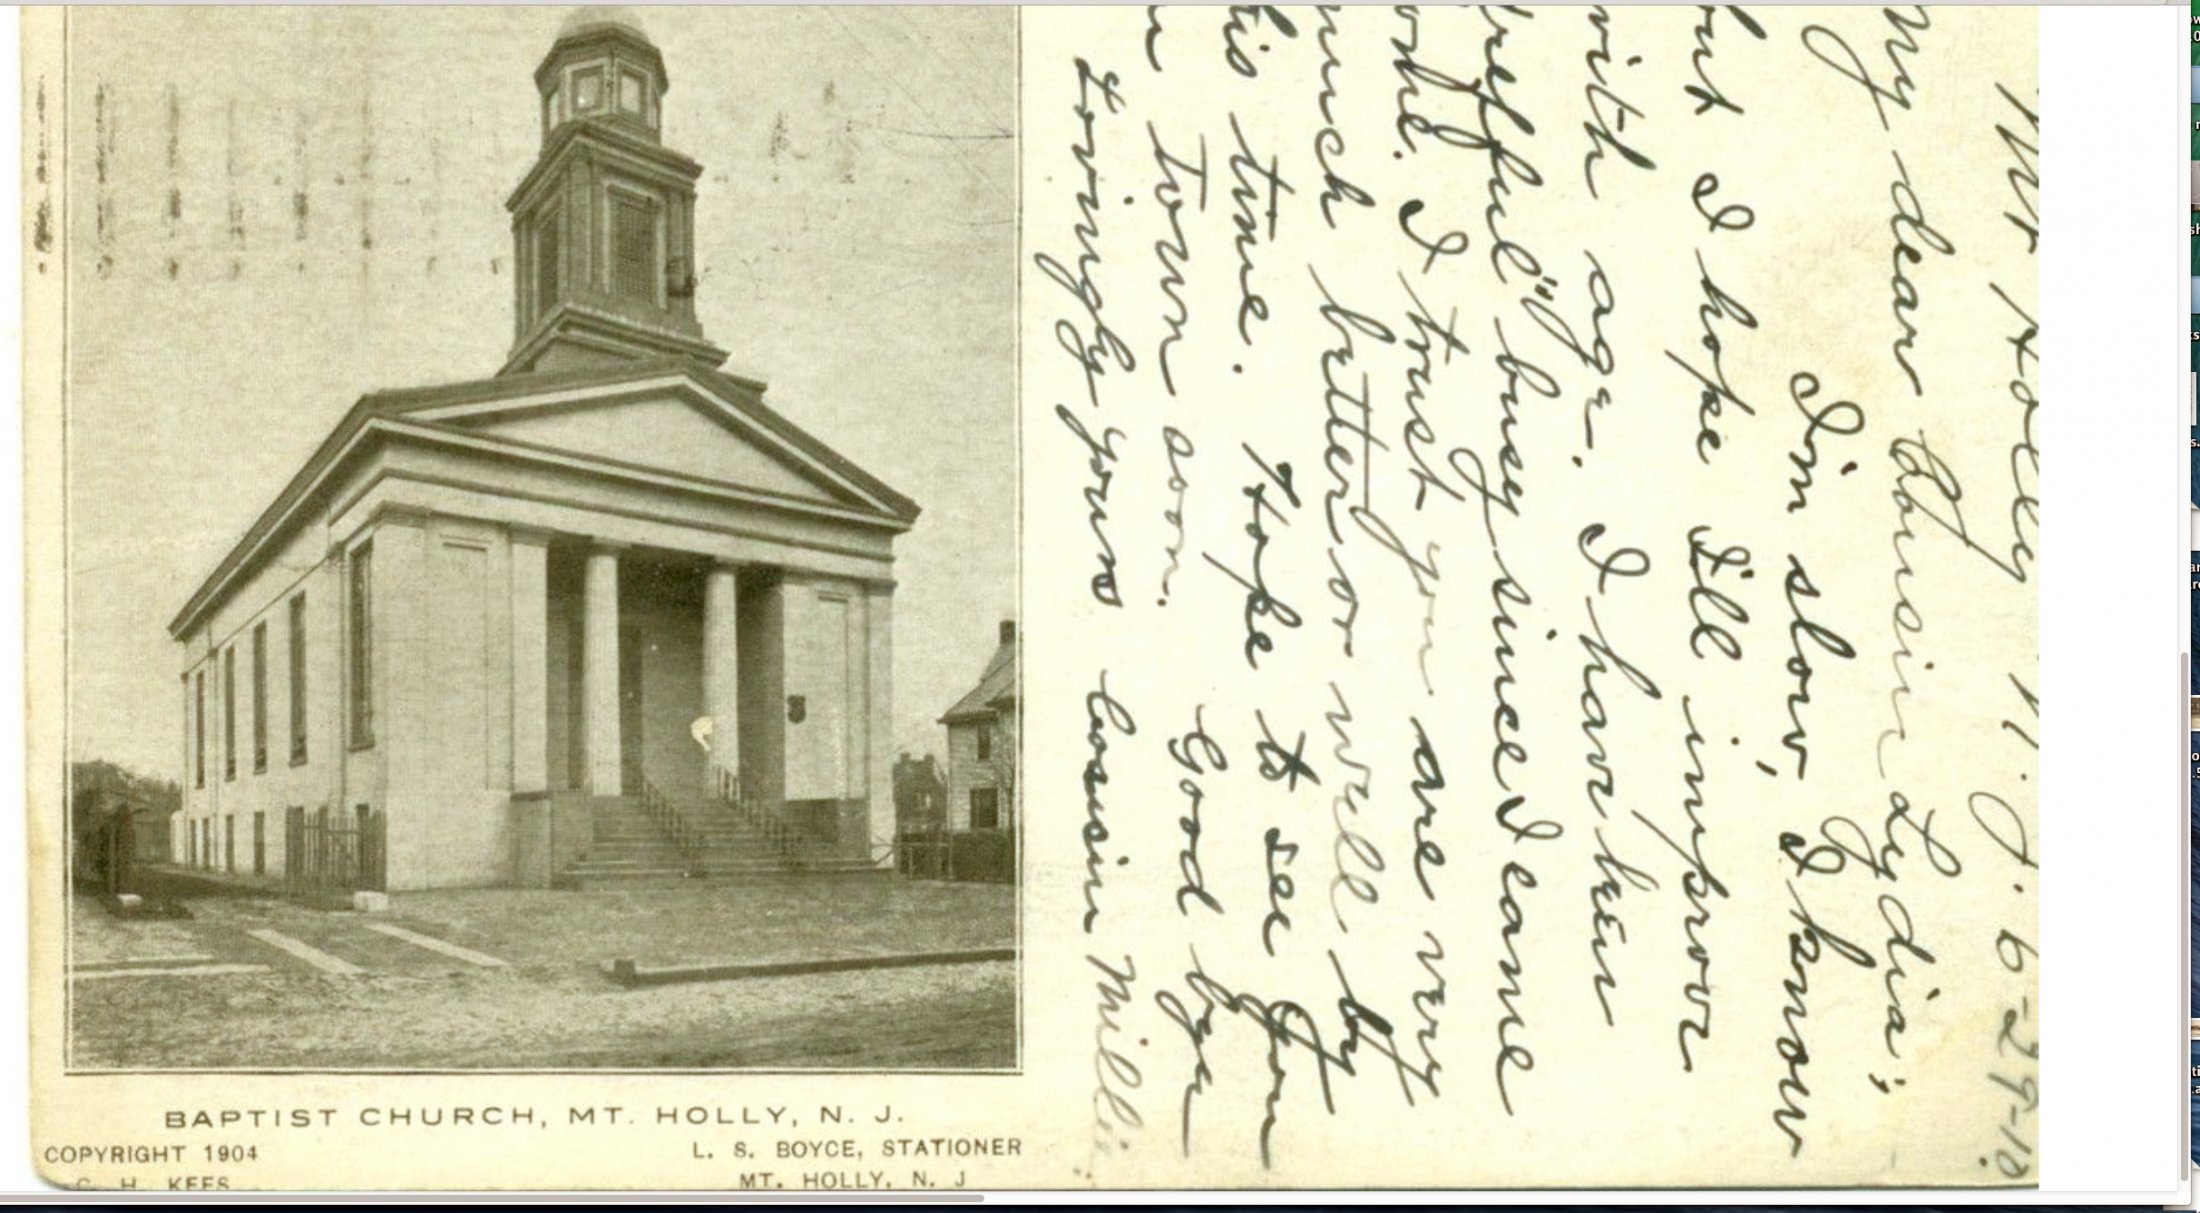 Mt Holly N. J. 6-29-10.
My dear Cousin Lydia;
I'm slow, I know
but I hope I'll improve
with age. I have been
"dreffful" busy since I came
home. I trust you are very
much better or well by
this time. Hope to see you
in town soon. Good bye
Lovingly yours Cousin Millie
BAPTIST CHURCH, MT. HOLLY, N. J.
COPYRIGHT 1904
L. S. BOYCE, STATIONER
C. H. KEES
MT. HOLLY, N. J